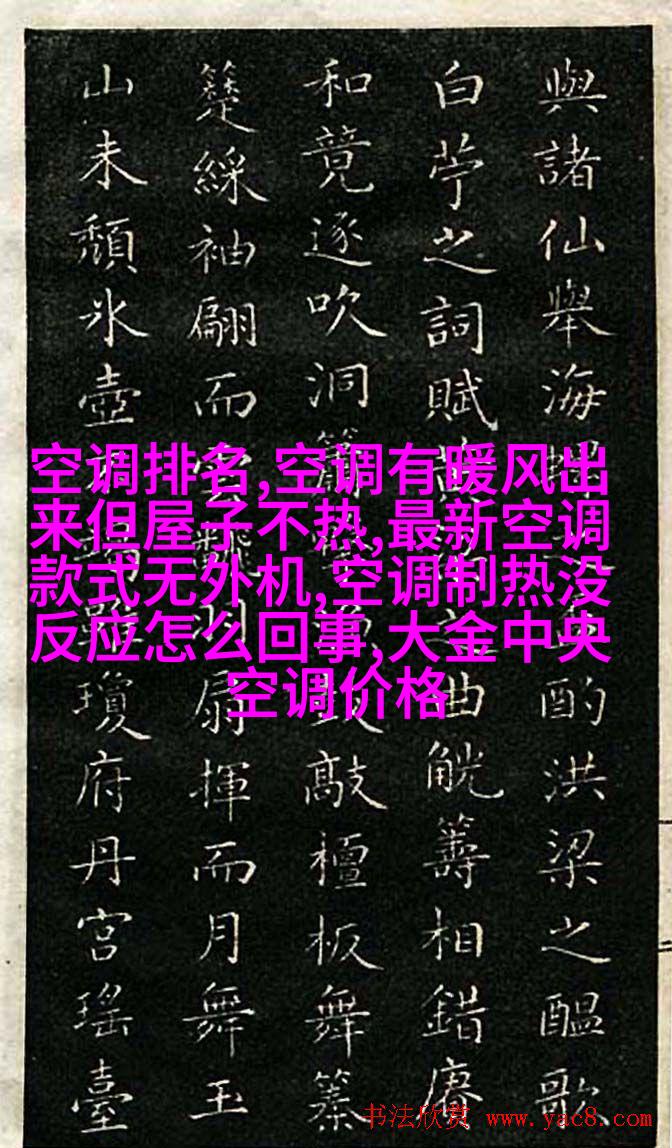 與諸仙舉海酌洪梁之醞歌
白苧之詞賦之曲觥籌相錯賡
和竟逐吹洞簫鼓敲檀板舞
綵袖翩而雲飄羽扇揮而月舞玉
山未頹氷壺瓊府丹宮瑤臺
空调排名,空调有暖风出
来但屋子不热,最新空调
款式无外机,空调制热没
反应怎么回事,大金中央
空调价格
书法欣赏 www.yac8.com